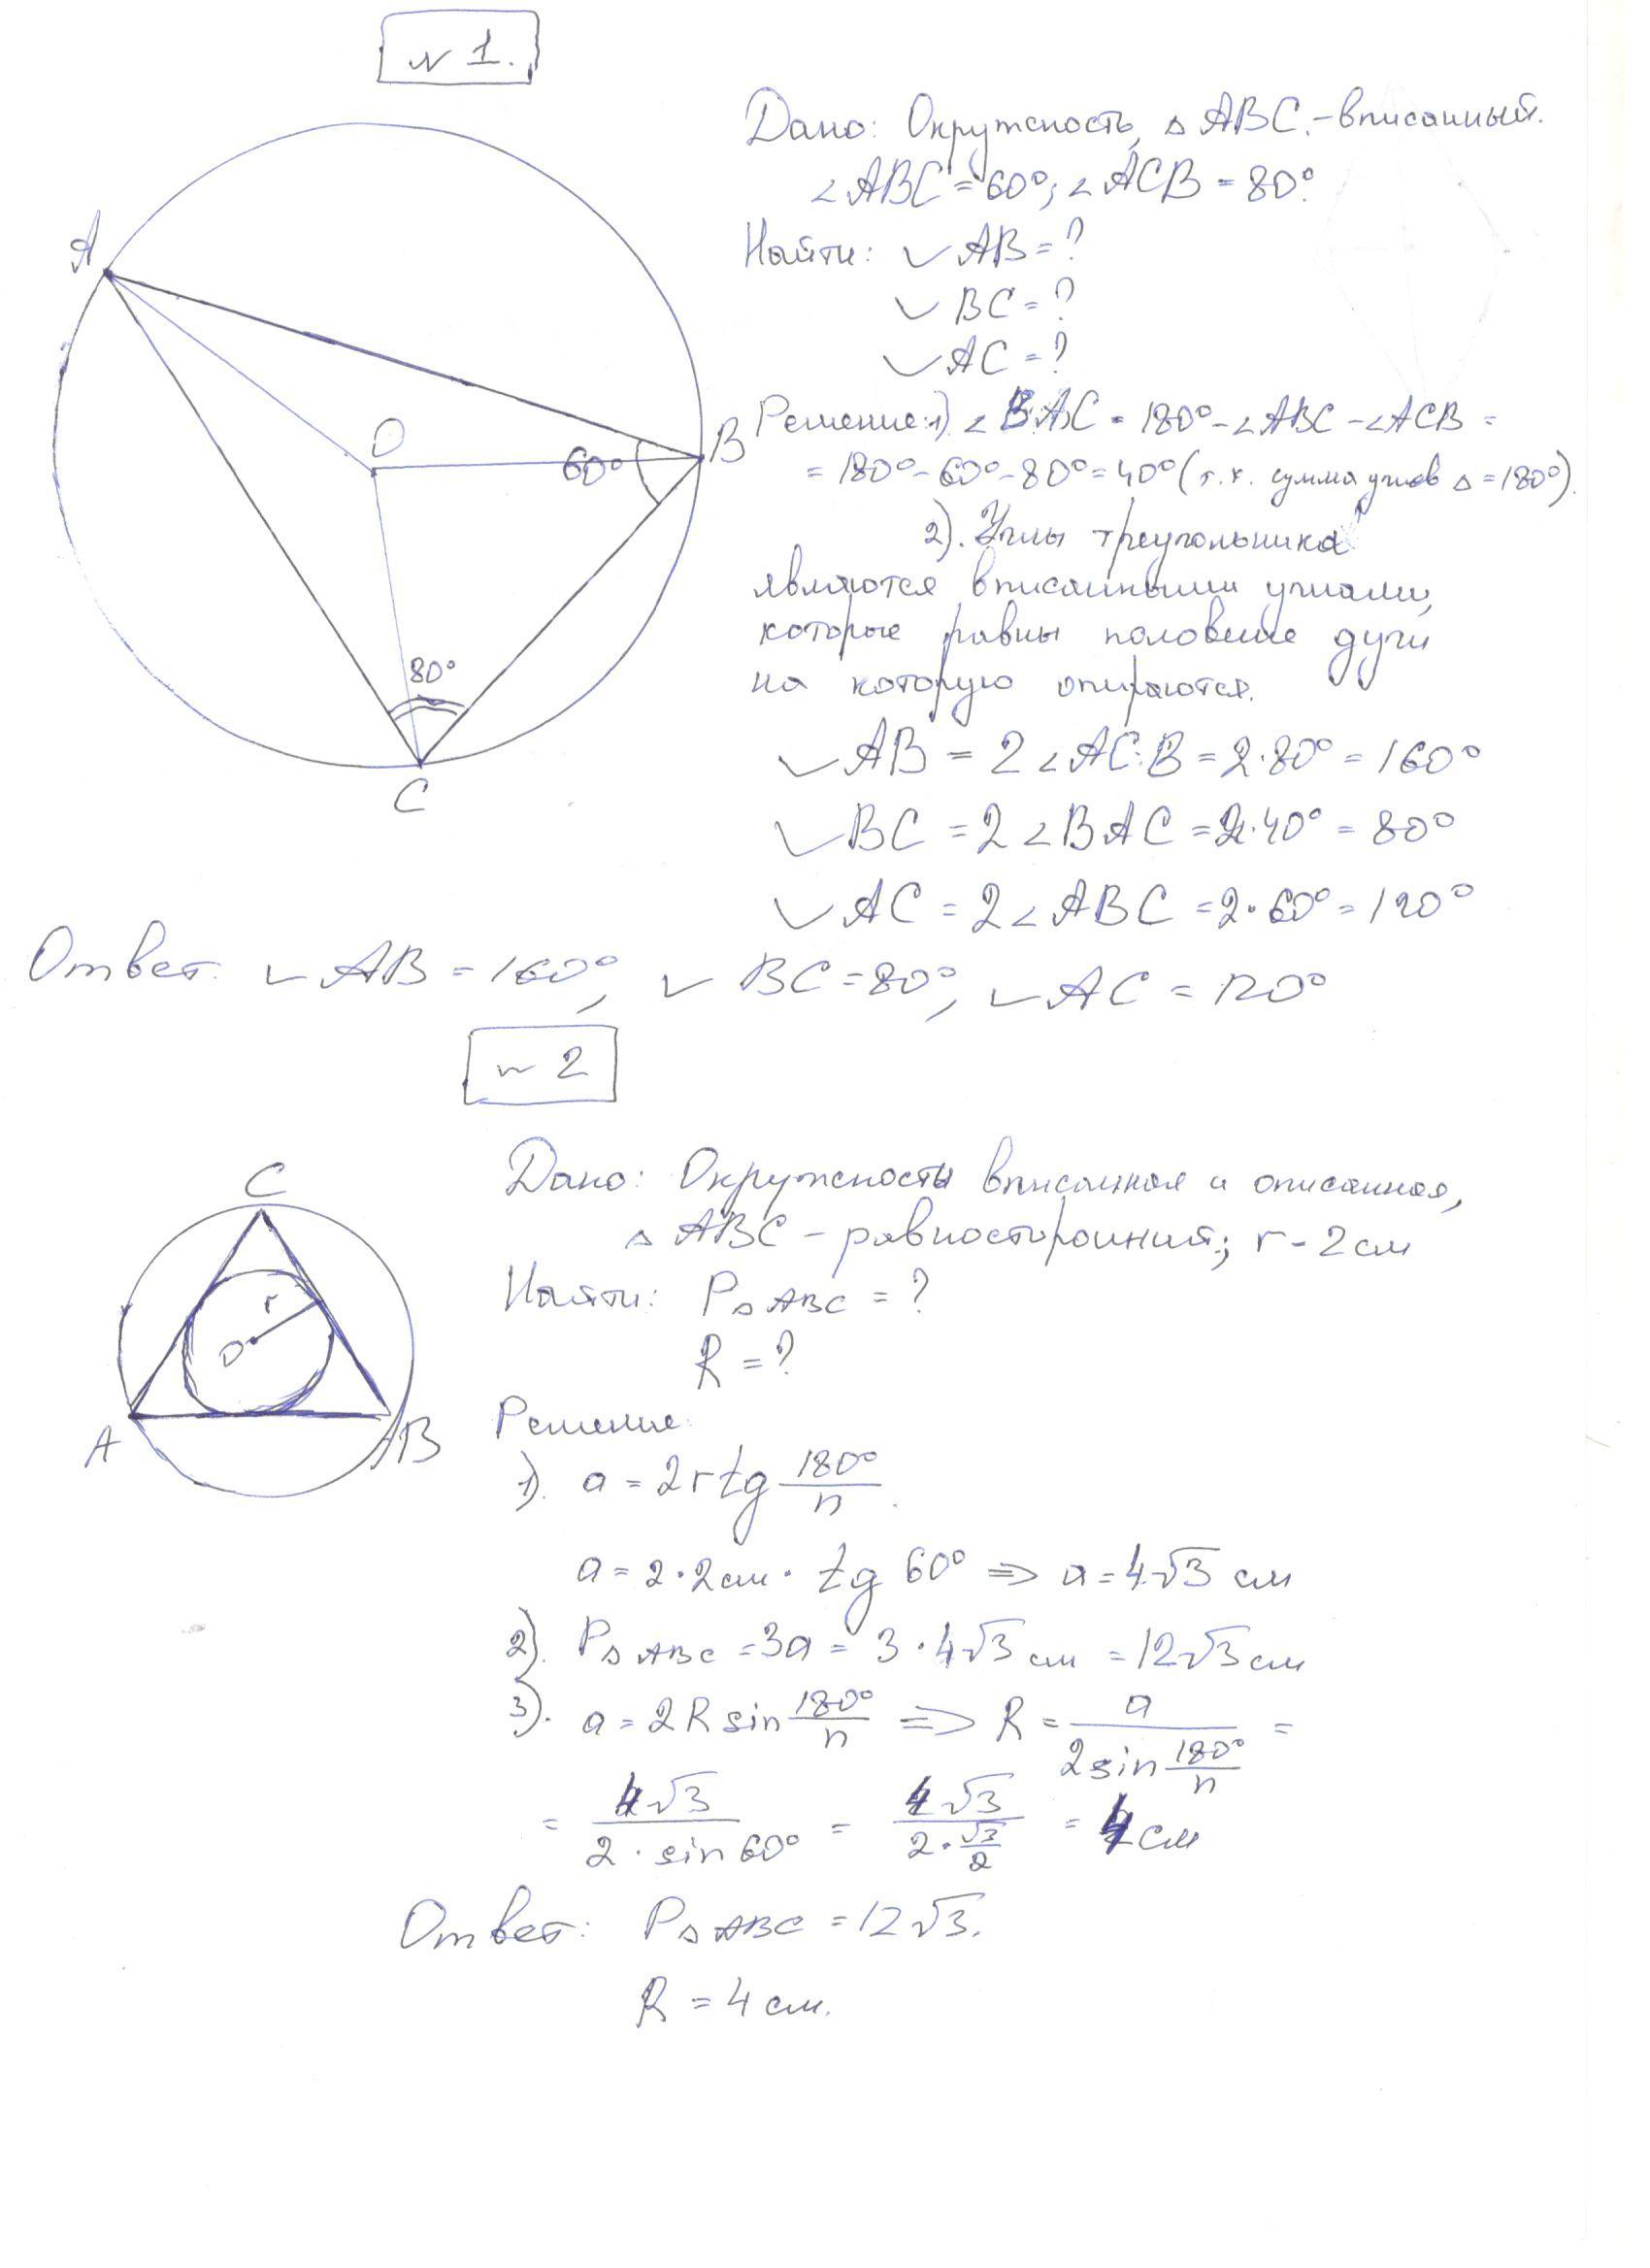 N 1.
A
O
B
60°
80°
C
Дано: Окружность, △ ABC.-вписанный.
∠ABC = 60°; ∠ACB = 80°.
Найти: ◡ AB = ?
◡ BC = ?
◡ AC = ?
Решение: 1) ∠BAC = 180° - ∠ABC - ∠ACB =
= 180° - 60° - 80° = 40° (т.к. сумма углов △ = 180°).
2). Углы треугольника
являются вписанными углами,
которые равны половине дуги
на которую опираются.
◡ AB = 2 ∠ACB = 2·80° = 160°
◡ BC = 2 ∠BAC = 2·40° = 80°
◡ AC = 2 ∠ABC = 2·60° = 120°
Ответ: ◡ AB = 160°, ◡ BC = 80°, ◡ AC = 120°
N 2
C
r
O
A
B
Дано: Окружность вписанная и описанная,
△ ABC - равносторонний; r - 2 см
Найти: P△ABC = ?
R = ?
Решение:
1). a = 2r tg 180°/n.
a = 2·2см · tg 60° => a = 4√3 см
2). P△ABC = 3a = 3·4√3 см = 12√3 см
3). a = 2R sin 180°/n => R = a/(2 sin 180°/n) =
= 4√3/(2·sin 60°) = 4√3/(2·√3/2) = 4 см
Ответ: P△ABC = 12√3.
R = 4 см.